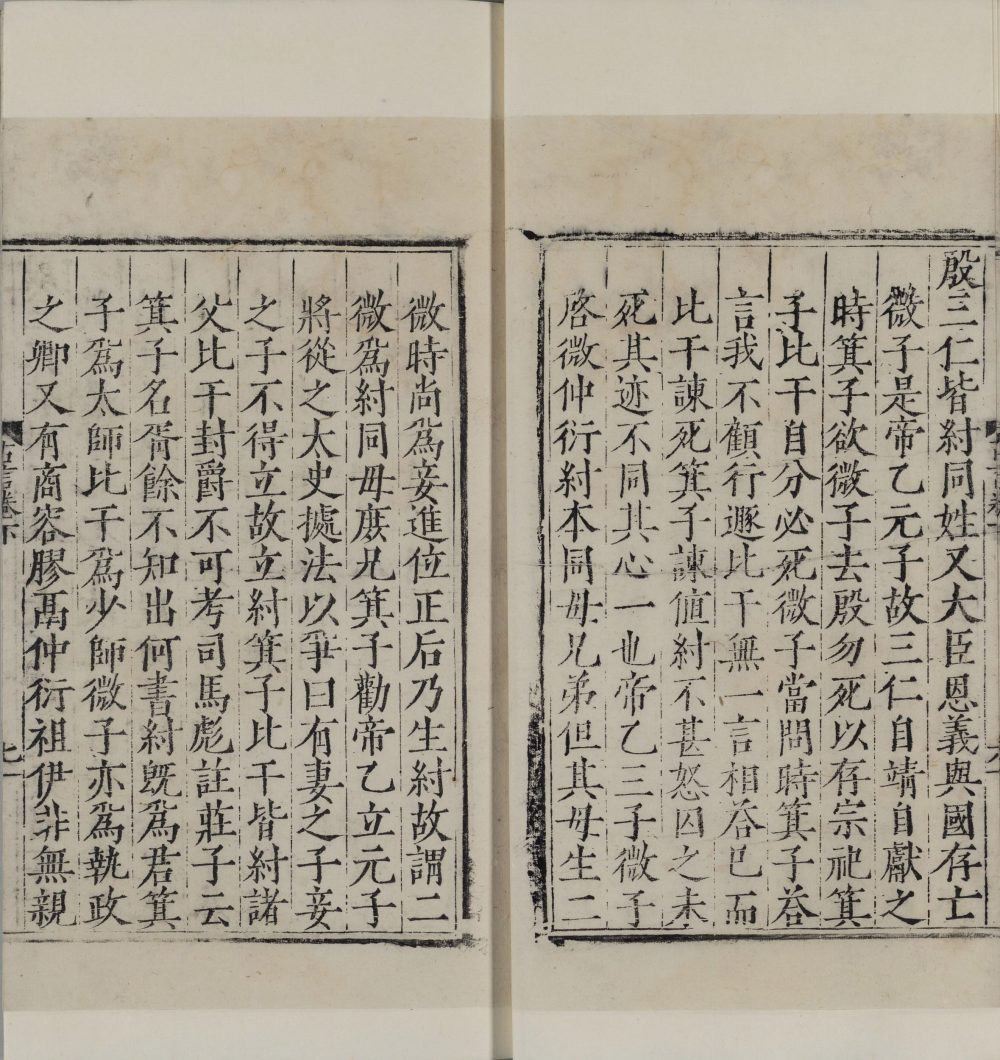 殷三仁皆紂同姓又大臣恩義與國存亡
微子是帝乙元子故三仁自靖自獻之
時箕子欲微子去殷勿死以存宗祀箕
子比干自分必死微子當問時箕子荅
言我不顧行遯比干無一言相荅已而
比干諫死箕子諫值紂不甚怒囚之未
死其迹不同其心一也帝乙三子微子
啓微仲衍紂本同母兄弟但其母生二
微時尚爲妾進位正后乃生紂故謂二
微爲紂同母庻兄箕子勸帝乙立元子
將從之太史㨿法以爭曰有妻之子妾
之子不得立故立紂箕子比干皆紂諸
父比干封爵不可考司馬彪註莊子云
箕子名胥餘不知出何書紂旣爲君箕
子爲太師比干爲少師微子亦爲執政
之卿又有商容膠鬲仲衍祖伊非無親
卷下
七